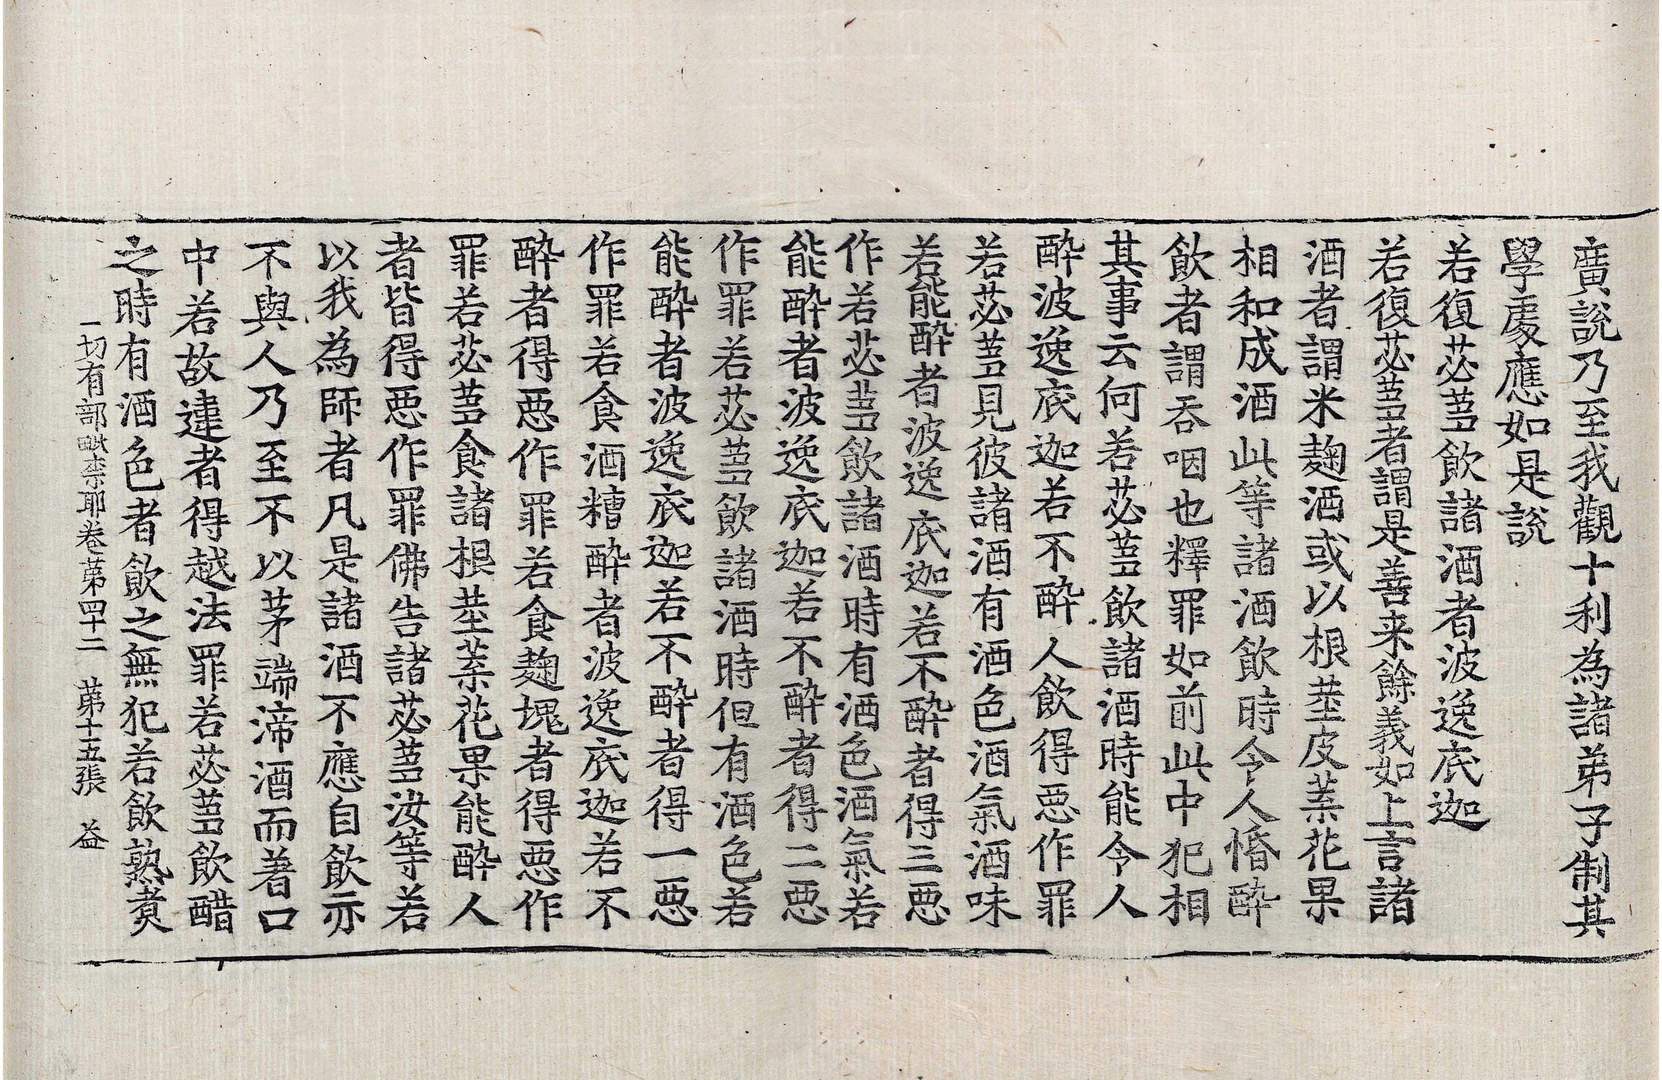 廣說乃至我觀十利為諸弟子制其
學處應如是說
若復苾蒭飲諸酒者波逸底迦
若復苾蒭者謂是善来餘義如上言諸
酒者謂米麴酒或以根莖皮葉花果
相和成酒此等諸酒飲時令人惛醉
飲者謂吞咽也釋罪如前此中犯相
其事云何若苾蒭飲諸酒時能令人
醉波逸底迦若不醉人飲得惡作罪
若苾蒭見彼諸酒有酒色酒氣酒味
若能醉者波逸底迦若不醉者得三惡
作若苾蒭飲諸酒時有酒色酒氣若
能醉者波逸底迦若不醉者得二惡
作罪若苾蒭飲諸酒時但有酒色若
能醉者波逸底迦若不醉者得一惡
作罪若食酒糟醉者波逸底迦若不
醉者得惡作罪若食麴塊者得惡作
罪若苾蒭食諸根莖葉花果能醉人
者皆得惡作罪佛告諸苾蒭汝等若
以我為師者凡是諸酒不應自飲亦
不與人乃至不以茅端渧酒而著口
中若故違者得越法罪若苾蒭飲醋
之時有酒色者飲之無犯若飲熟煮
一切有部毗柰耶卷第四十二 第十五張 益